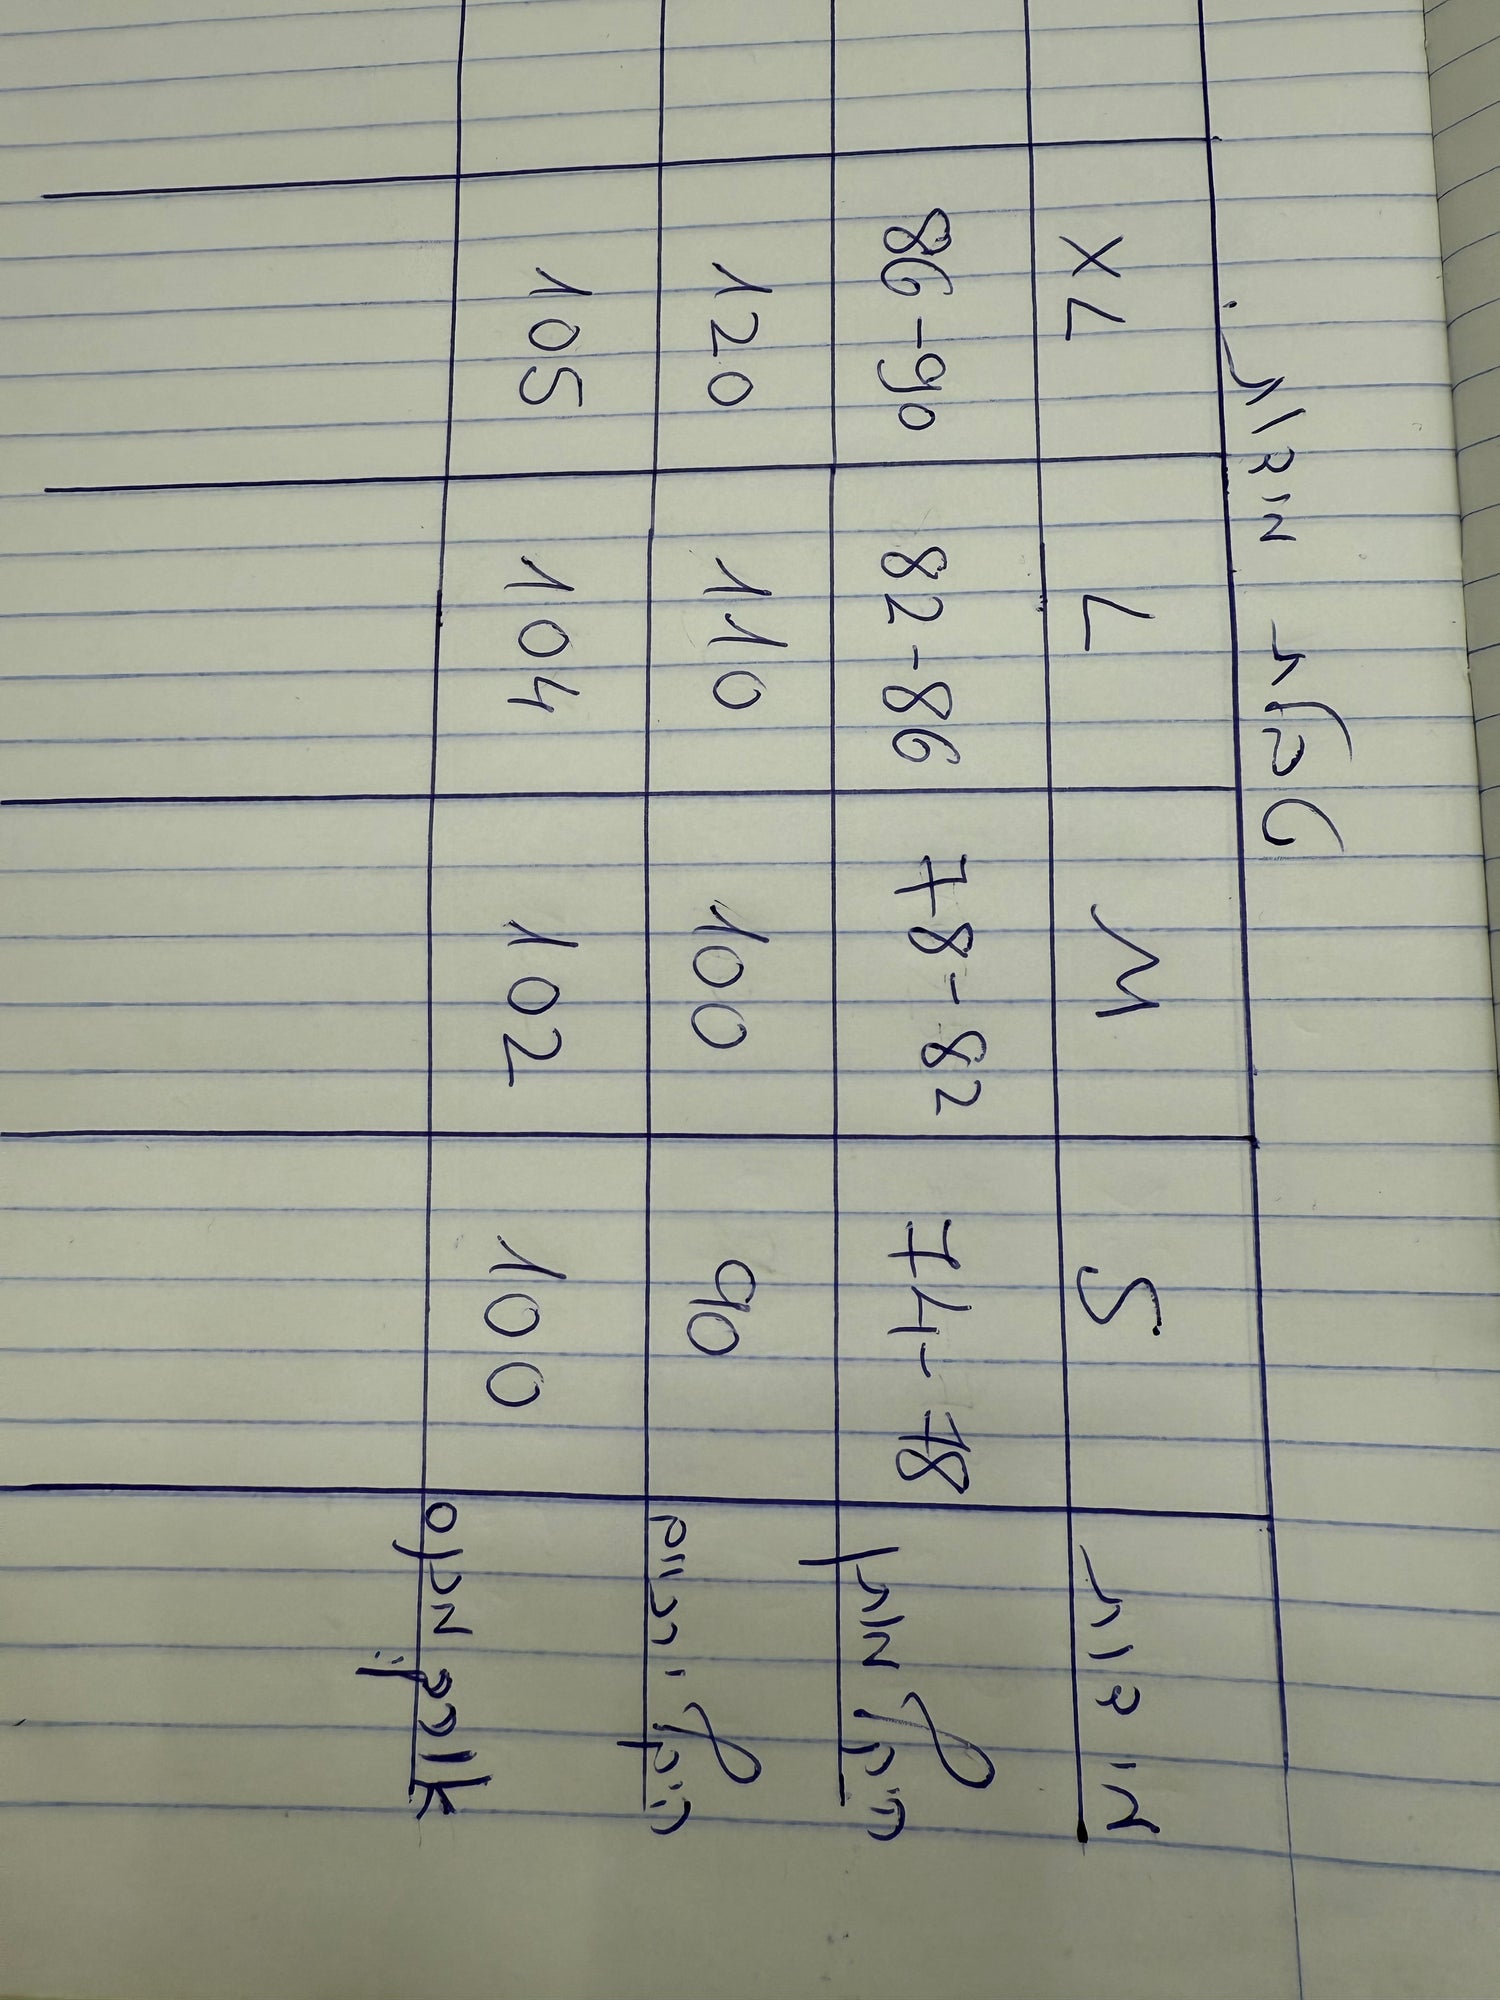 טבלת מידות
מידות S M L XL
היקף מותן 74-78 78-82 82-86 86-90
היקף ירכיים 90 100 110 120
אורך מכנס 100 102 104 105